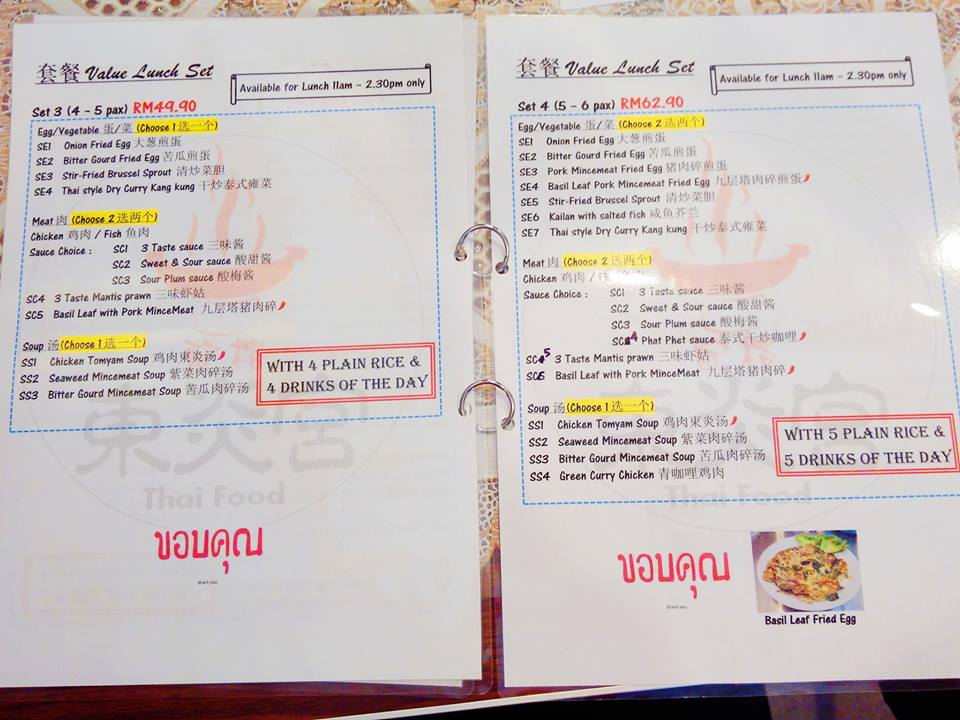 套餐 Value Lunch Set
Available for Lunch 11am - 2.30pm only
Set 3 (4 - 5 pax) RM49.90
Egg/Vegetable 蛋/菜 (Choose 1 选一个)
SE1 Onion Fried Egg 大葱煎蛋
SE2 Bitter Gourd Fried Egg 苦瓜煎蛋
SE3 Stir-Fried Brussel Sprout 清炒菜胆
SE4 Thai style Dry Curry Kang kung 干炒泰式雍菜
Meat 肉 (Choose 2 选两个)
Chicken 鸡肉 / Fish 鱼肉
Sauce Choice : SC1 3 Taste sauce 三味酱
SC2 Sweet & Sour sauce 酸甜酱
SC3 Sour Plum sauce 酸梅酱
SC4 3 Taste Mantis prawn 三味虾姑
SC5 Basil Leaf with Pork MinceMeat 九层塔猪肉碎
Soup 汤 (Choose 1 选一个)
SS1 Chicken Tomyam Soup 鸡肉東炎汤
SS2 Seaweed Mincemeat Soup 紫菜肉碎汤
SS3 Bitter Gourd Mincemeat Soup 苦瓜肉碎汤
WITH 4 PLAIN RICE &
4 DRINKS OF THE DAY
東炎宫
Thai Food
ขอบคุณ
thank you
套餐 Value Lunch Set
Available for Lunch 11am - 2.30pm only
Set 4 (5 - 6 pax) RM62.90
Egg/Vegetable 蛋/菜 (Choose 2 选两个)
SE1 Onion Fried Egg 大葱煎蛋
SE2 Bitter Gourd Fried Egg 苦瓜煎蛋
SE3 Pork Mincemeat Fried Egg 猪肉碎煎蛋
SE4 Basil Leaf Pork Mincemeat Fried Egg 九层塔肉碎煎蛋
SE5 Stir-Fried Brussel Sprout 清炒菜胆
SE6 Kailan with salted fish 咸鱼芥兰
SE7 Thai style Dry Curry Kang kung 干炒泰式雍菜
Meat 肉 (Choose 2 选两个)
Chicken 鸡肉 /
Sauce Choice : SC1 3 Taste sauce 三味酱
SC2 Sweet & Sour sauce 酸甜酱
SC3 Sour Plum sauce 酸梅酱
SC4 Phat Phet sauce 泰式干炒咖哩
SC5 3 Taste Mantis prawn 三味虾姑
SC6 Basil Leaf with Pork MinceMeat 九层塔猪肉碎
Soup 汤 (Choose 1 选一个)
SS1 Chicken Tomyam Soup 鸡肉東炎汤
SS2 Seaweed Mincemeat Soup 紫菜肉碎汤
SS3 Bitter Gourd Mincemeat Soup 苦瓜肉碎汤
SS4 Green Curry Chicken 青咖哩鸡肉
WITH 5 PLAIN RICE &
5 DRINKS OF THE DAY
Thai Food
ขอบคุณ
thank you
Basil Leaf Fried Egg